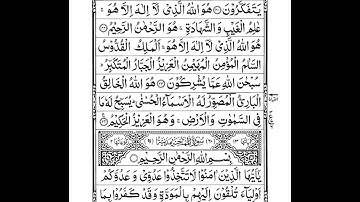 يَتَفَكَّرُوْنَ ۞ هُوَ اللّٰهُ الَّذِيْ لَاۤ اِلٰهَ اِلَّا هُوَ ۚ
عٰلِمُ الْغَيْبِ وَ الشَّهَادَةِ ۚ هُوَ الرَّحْمٰنُ الرَّحِيْمُ ۞
هُوَ اللّٰهُ الَّذِيْ لَاۤ اِلٰهَ اِلَّا هُوَ ۚ اَلْمَلِكُ الْقُدُّوْسُ
السَّلٰمُ الْمُؤْمِنُ الْمُهَيْمِنُ الْعَزِيْزُ الْجَبَّارُ الْمُتَكَبِّرُ ؕ
سُبْحٰنَ اللّٰهِ عَمَّا يُشْرِكُوْنَ ۞ هُوَ اللّٰهُ الْخَالِقُ
الْبَارِئُ الْمُصَوِّرُ لَهُ الْاَسْمَآءُ الْحُسْنٰى ؕ يُسَبِّحُ لَهٗ مَا
فِي السَّمٰوٰتِ وَ الْاَرْضِ ۚ وَ هُوَ الْعَزِيْزُ الْحَكِيْمُ ۞
بِسْمِ اللّٰهِ الرَّحْمٰنِ الرَّحِيْمِ
يٰۤاَيُّهَا الَّذِيْنَ اٰمَنُوْا لَا تَتَّخِذُوْا عَدُوِّيْ وَ عَدُوَّكُمْ
اَوْلِيَآءَ تُلْقُوْنَ اِلَيْهِمْ بِالْمَوَدَّةِ وَ قَدْ كَفَرُوْا بِمَا